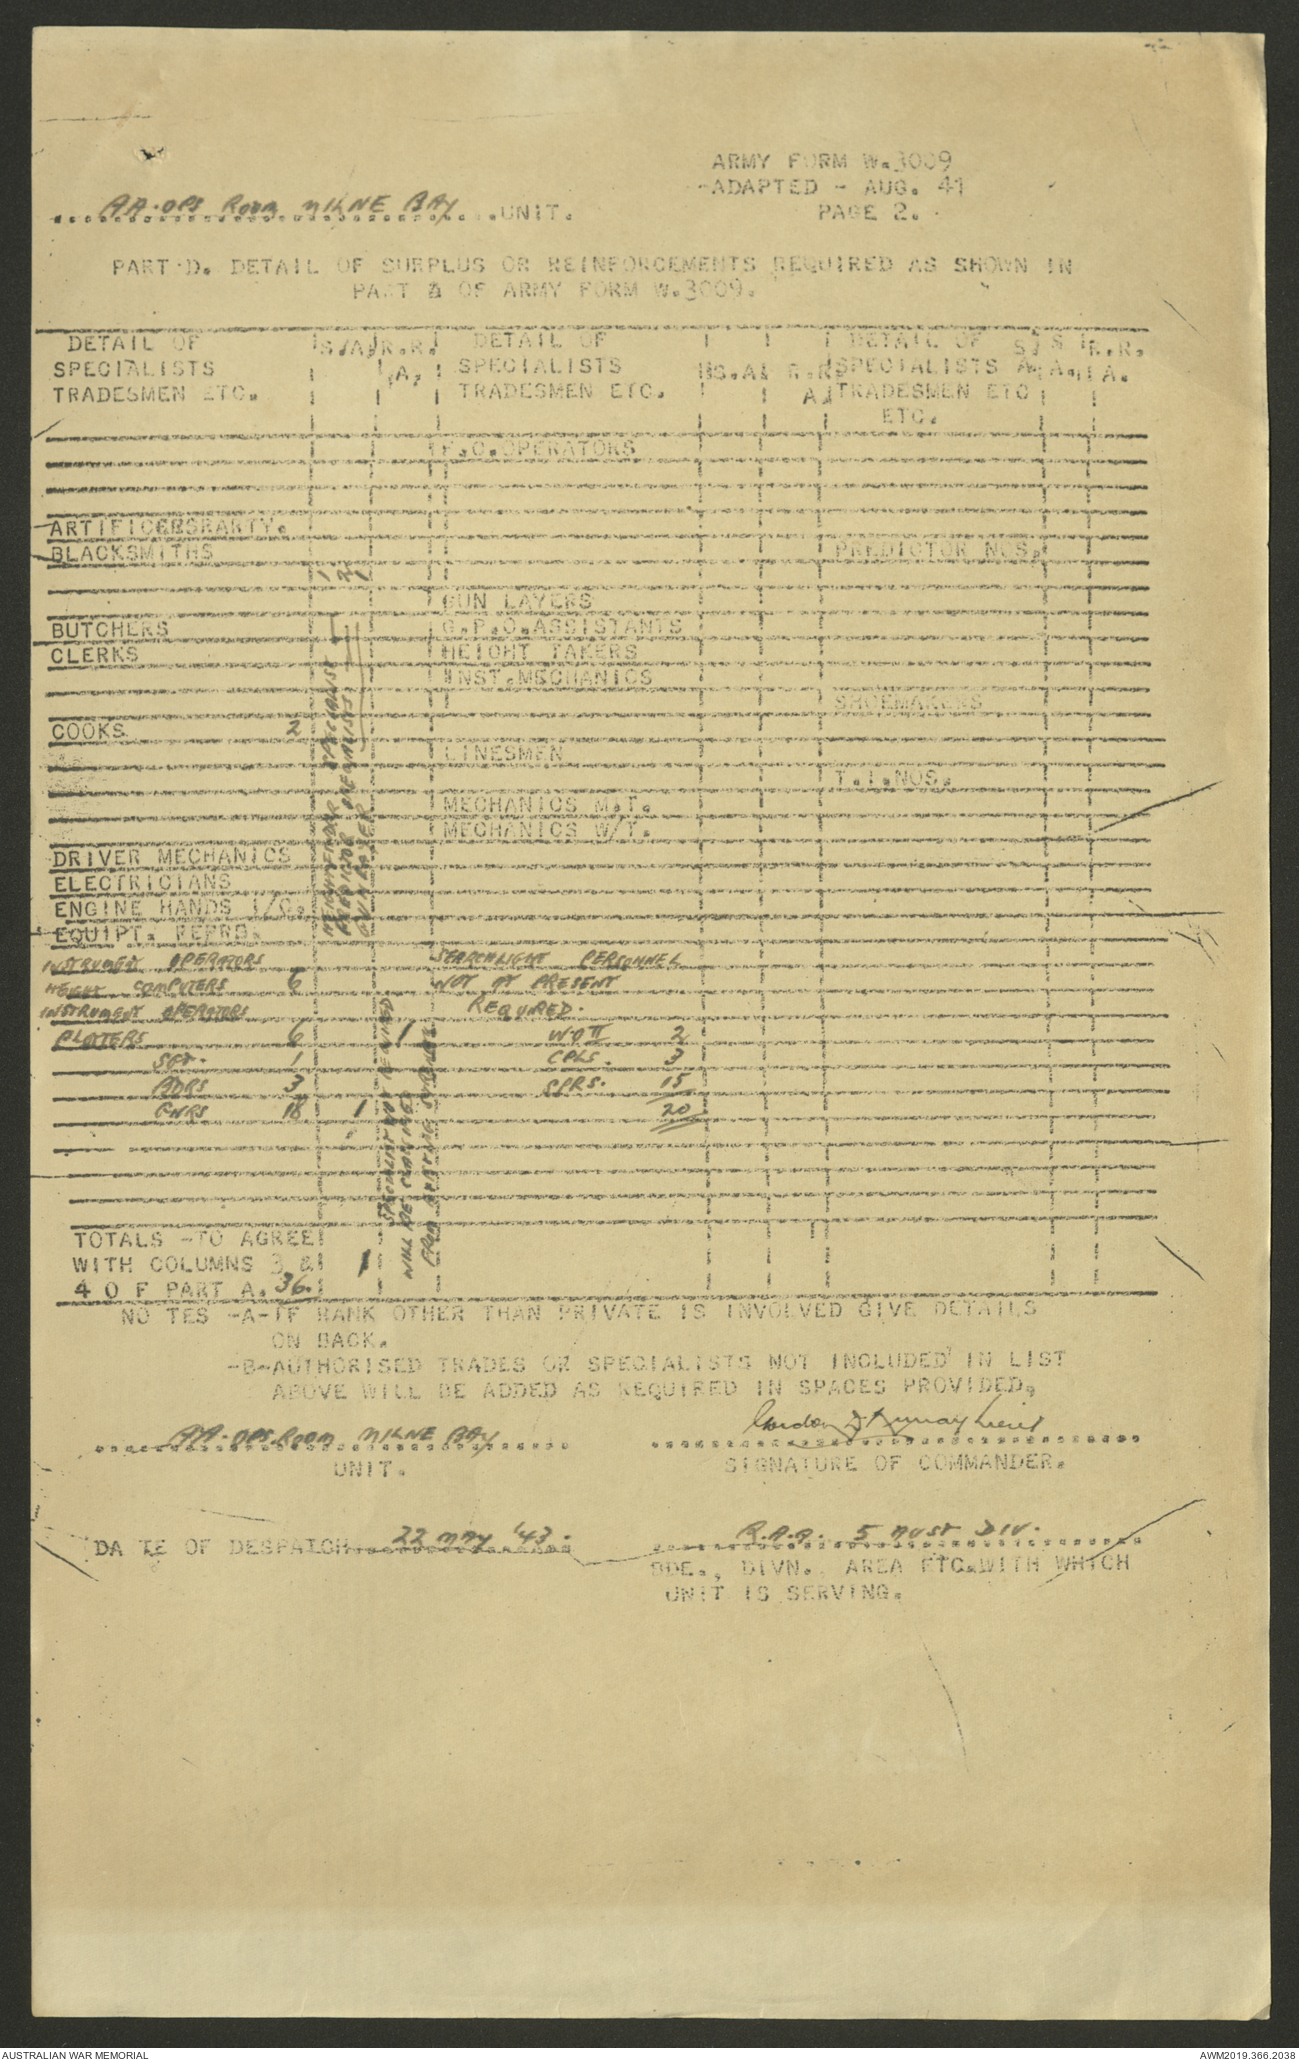 ARMY FORM W.3009
-ADAPTED - AUG. 41
AA.OPS ROOM MILNE BAY UNIT.
PAGE 2.
PART D. DETAIL OF SURPLUS OR REINFORCEMENTS REQUIRED AS SHOWN IN
PART A OF ARMY FORM W.3009.
DETAIL OF S.A. R.R. DETAIL OF DETAIL OF S S R.R.
SPECIALISTS A. SPECIALISTS S.A R.R SPECIALISTS A. A. A.
TRADESMEN ETC. TRADESMEN ETC. A. TRADESMEN ETC
ETC.
F.C.OPERATORS
ARTIFICERSRARTY.
BLACKSMITHS PREDICTOR NOS.
1 2 1
GUN LAYERS
BUTCHERS G.P.O.ASSISTANTS
CLERKS HEIGHT TAKERS
INST.MECHANICS
SHOEMAKERS
COOKS 2
LINESMEN
T.I.NOS.
MECHANICS M.T.
MECHANICS W/T.
DRIVER MECHANICS
ELECTRICIANS
ENGINE HANDS I/C.
EQUIPT. REPRS.
HEIGHTFINDER SPECIALIST
PREDICTOR SPECIALISTS
GUN LAYER
INSTRUMENT OPERATORS SEARCHLIGHT PERSONNEL
HEIGHT COMPUTERS 6 NOT AT PRESENT
INSTRUMENT OPERATORS REQUIRED.
PLOTTERS 6 1 WO II 2
SGT. 1 CPLS. 3
BDRS 3 SPRS. 15
GNRS 18 1 20
SPECIALIST NOT REQUIRED
WILL BE
FROM EXISTING
TOTALS -TO AGREE
WITH COLUMNS 3 & 1
4 O F PART A. 36.
NO TES -A-IF RANK OTHER THAN PRIVATE IS INVOLVED GIVE DETAILS
ON BACK.
-B-AUTHORISED TRADES OR SPECIALISTS NOT INCLUDED IN LIST
ABOVE WILL BE ADDED AS REQUIRED IN SPACES PROVIDED.
AA.OPS.ROOM MILNE BAY Gordon J Murray Lieut
UNIT. SIGNATURE OF COMMANDER.
DA TE OF DESPATCH 22 MAY '43. R.A.A. 5 AUST DIV.
BDE., DIVN., AREA ETC.WITH WHICH
UNIT IS SERVING.
AUSTRALIAN WAR MEMORIAL AWM2019.366.2038